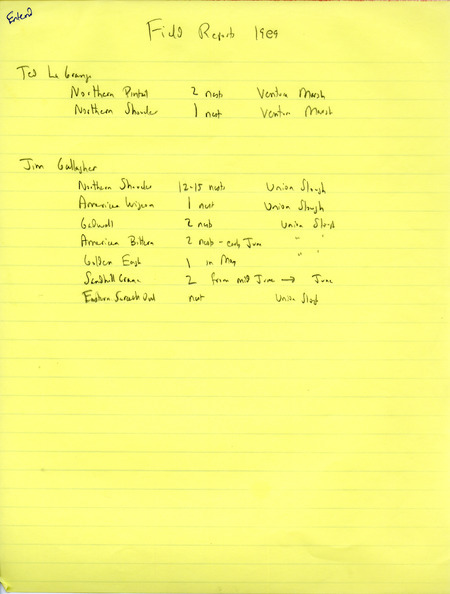 Entered
Field Reports 1989
Ted La Grange
Northern Pintail 2 nests Ventura Marsh
Northern Shoveler 1 nest Ventura Marsh
Jim Gallagher
Northern Shoveler 12-15 nests Union Slough
American Wigeon 1 nest Union Slough
Gadwall 2 nests Union Slough
American Bittern 2 nests - early June " "
Golden Eagle 1 in May " "
Sandhill Crane 2 from mid June → June
Eastern Screech Owl nest Union Slough